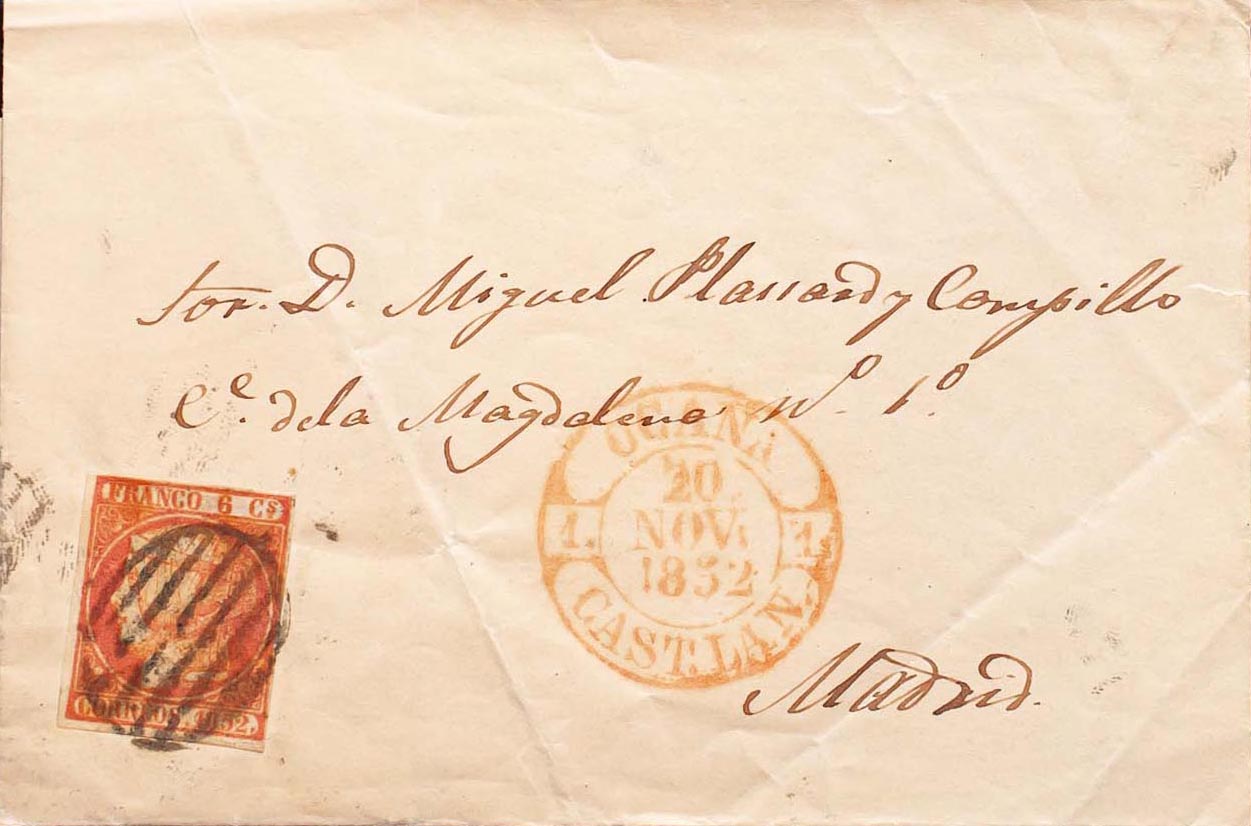 Sor. D. Miguel Plassard y Campillo
Ce. de la Magdalena No. 1o.
FRANCO 6 Cs
CORREOS 1852
OCAÑA
20
NOV.
1852
1. 1.
CAST.LAN.
Madrid.